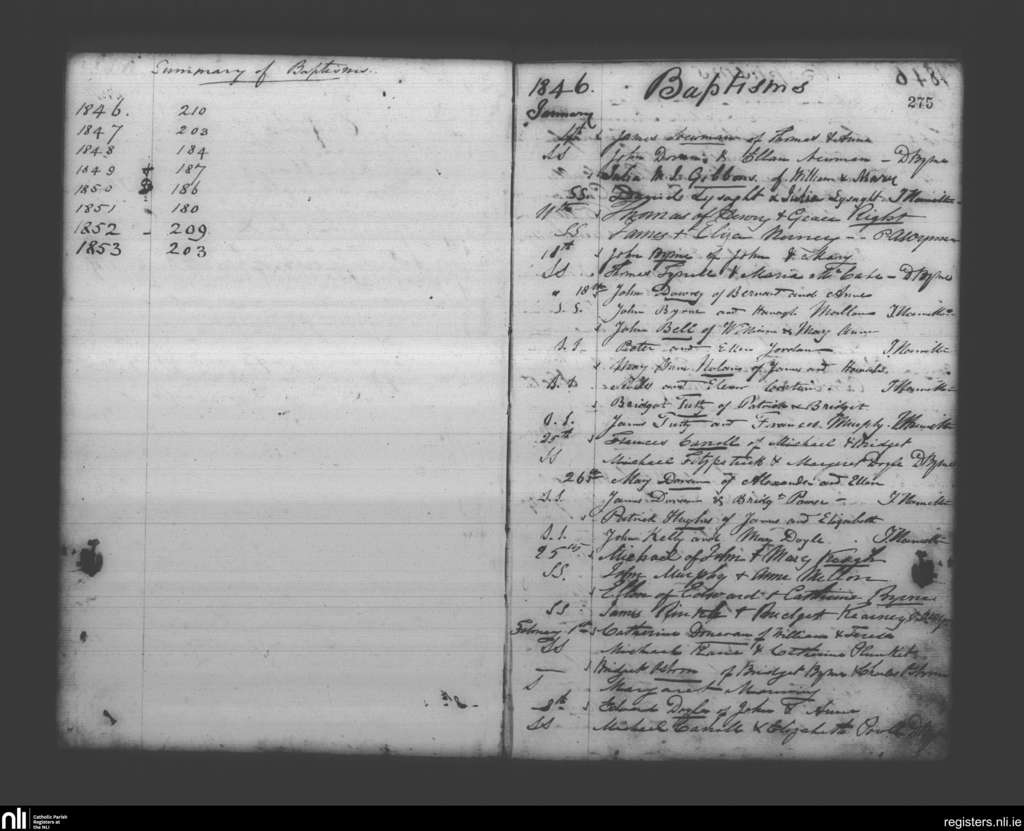 Summary of Baptisms.
1846. 210
1847 203
1848 184
1849 187
1850 186
1851 180
1852 - 209
1853 203
1846. Baptisms
275
January
4th James Newman of Thomas & Anne
SS John & Ellen Newman - D Byrne
Julia Gibbons of William & Mary
SS. Lysaght & Julia Lysaght J Hamilton
11th Thomas of Henry & Grace Right
SS James & Eliza
18th John Byrne of John & Mary
SS Thomas Tyrrell & Maria McCabe - D Byrne
" 18th John Downey of Bernard and Anne
S. S. John Byrne and J Hamilton
John Bell of William & Mary Ann
S. S. Peter and Ellen Jordan J Hamilton
Mary Ann Nolan of James and
S. S. and J Hamilton
Bridget Tutty of Patrick & Bridget
S. S. James Tutty and Frances Murphy. J Hamilton
25th Frances Carroll of Michael & Bridget
SS Michael Fitzpatrick & Margaret Doyle D Byrne
26th Mary of Alexander and Ellen
S. S. James & Bridgt Power - J Hamilton
Patrick Hughes of James and Elizabeth
S. S. John Kelly and Mary Doyle. J Hamilton
25th Michael of John & Mary Keogh
SS. John Murphy & Anne
of Edward & Catherine Byrne
SS James & Bridget Kearney
February 1st Catherine Donovan of William & Teresa
SS Michael Kane & Catherine Plunket
— Bridget of Bridget Byrne & Charles
S Margaret
8th Edward Doyle of John & Anne
SS Michael Carroll & Elizabeth
nli
Catholic Parish
Registers at
the NLI
registers.nli.ie